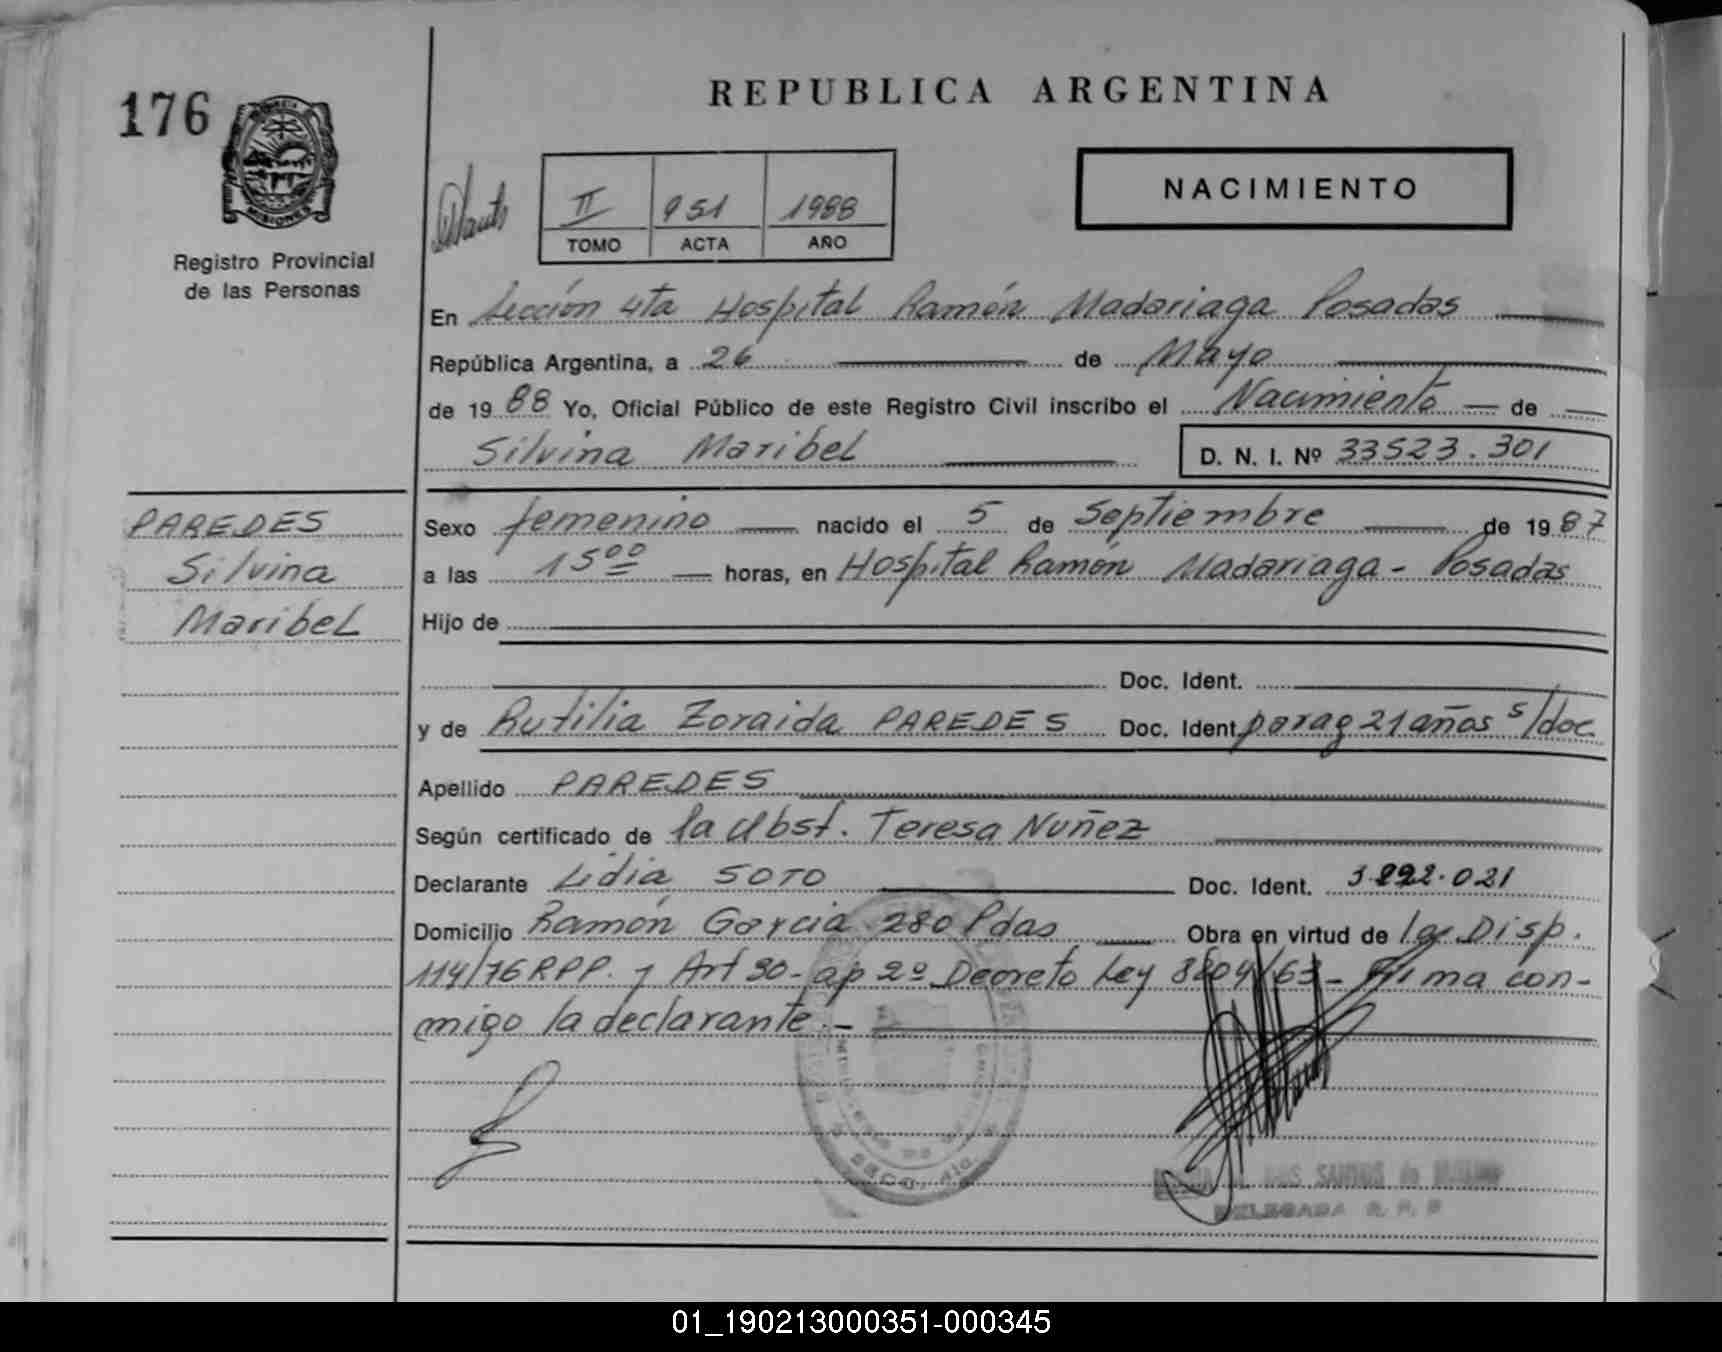 176
REPUBLICA ARGENTINA
MISIONES
Registro Provincial
de las Personas
II 951 1988
TOMO ACTA AÑO
NACIMIENTO
En Sección 4ta Hospital Ramón Madariaga Posadas
República Argentina, a 26 de Mayo
de 1988 Yo, Oficial Público de este Registro Civil inscribo el Nacimiento de
Silvina Maribel D. N. I. Nº 33523.301
PAREDES
Silvina
Maribel
Sexo femenino nacido el 5 de Septiembre de 1987
a las 15 00 horas, en Hospital Ramón Madariaga - Posadas
Hijo de
Doc. Ident.
y de Rutilia Zoraida PAREDES Doc. Ident. parag 21 años s/doc.
Apellido PAREDES
Según certificado de la Obst. Teresa Nuñez
Declarante Lidia SOTO Doc. Ident. 3.892.021
Domicilio Ramón Garcia 280 Pdas Obra en virtud de la Disp.
114/76 RPP. y Art 30- ap 2º Decreto Ley 8204/63- Firma con-
migo la declarante.-
SECC. 4ta.
DOS SANTOS de
DELEGADA R. P. P
01_190213000351-000345